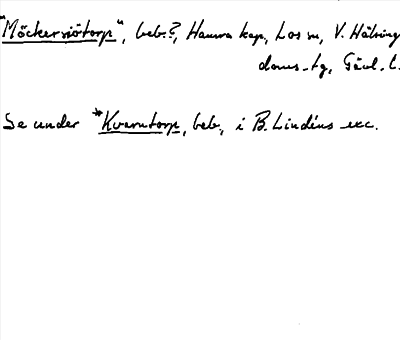 "Möckersjötorp", beb.?, Hamra kap, Los sn, V. Hälsing
doms. tg, Gävl. l.
Se under *Kvarntorp, beb, i B. Lindéns exc.